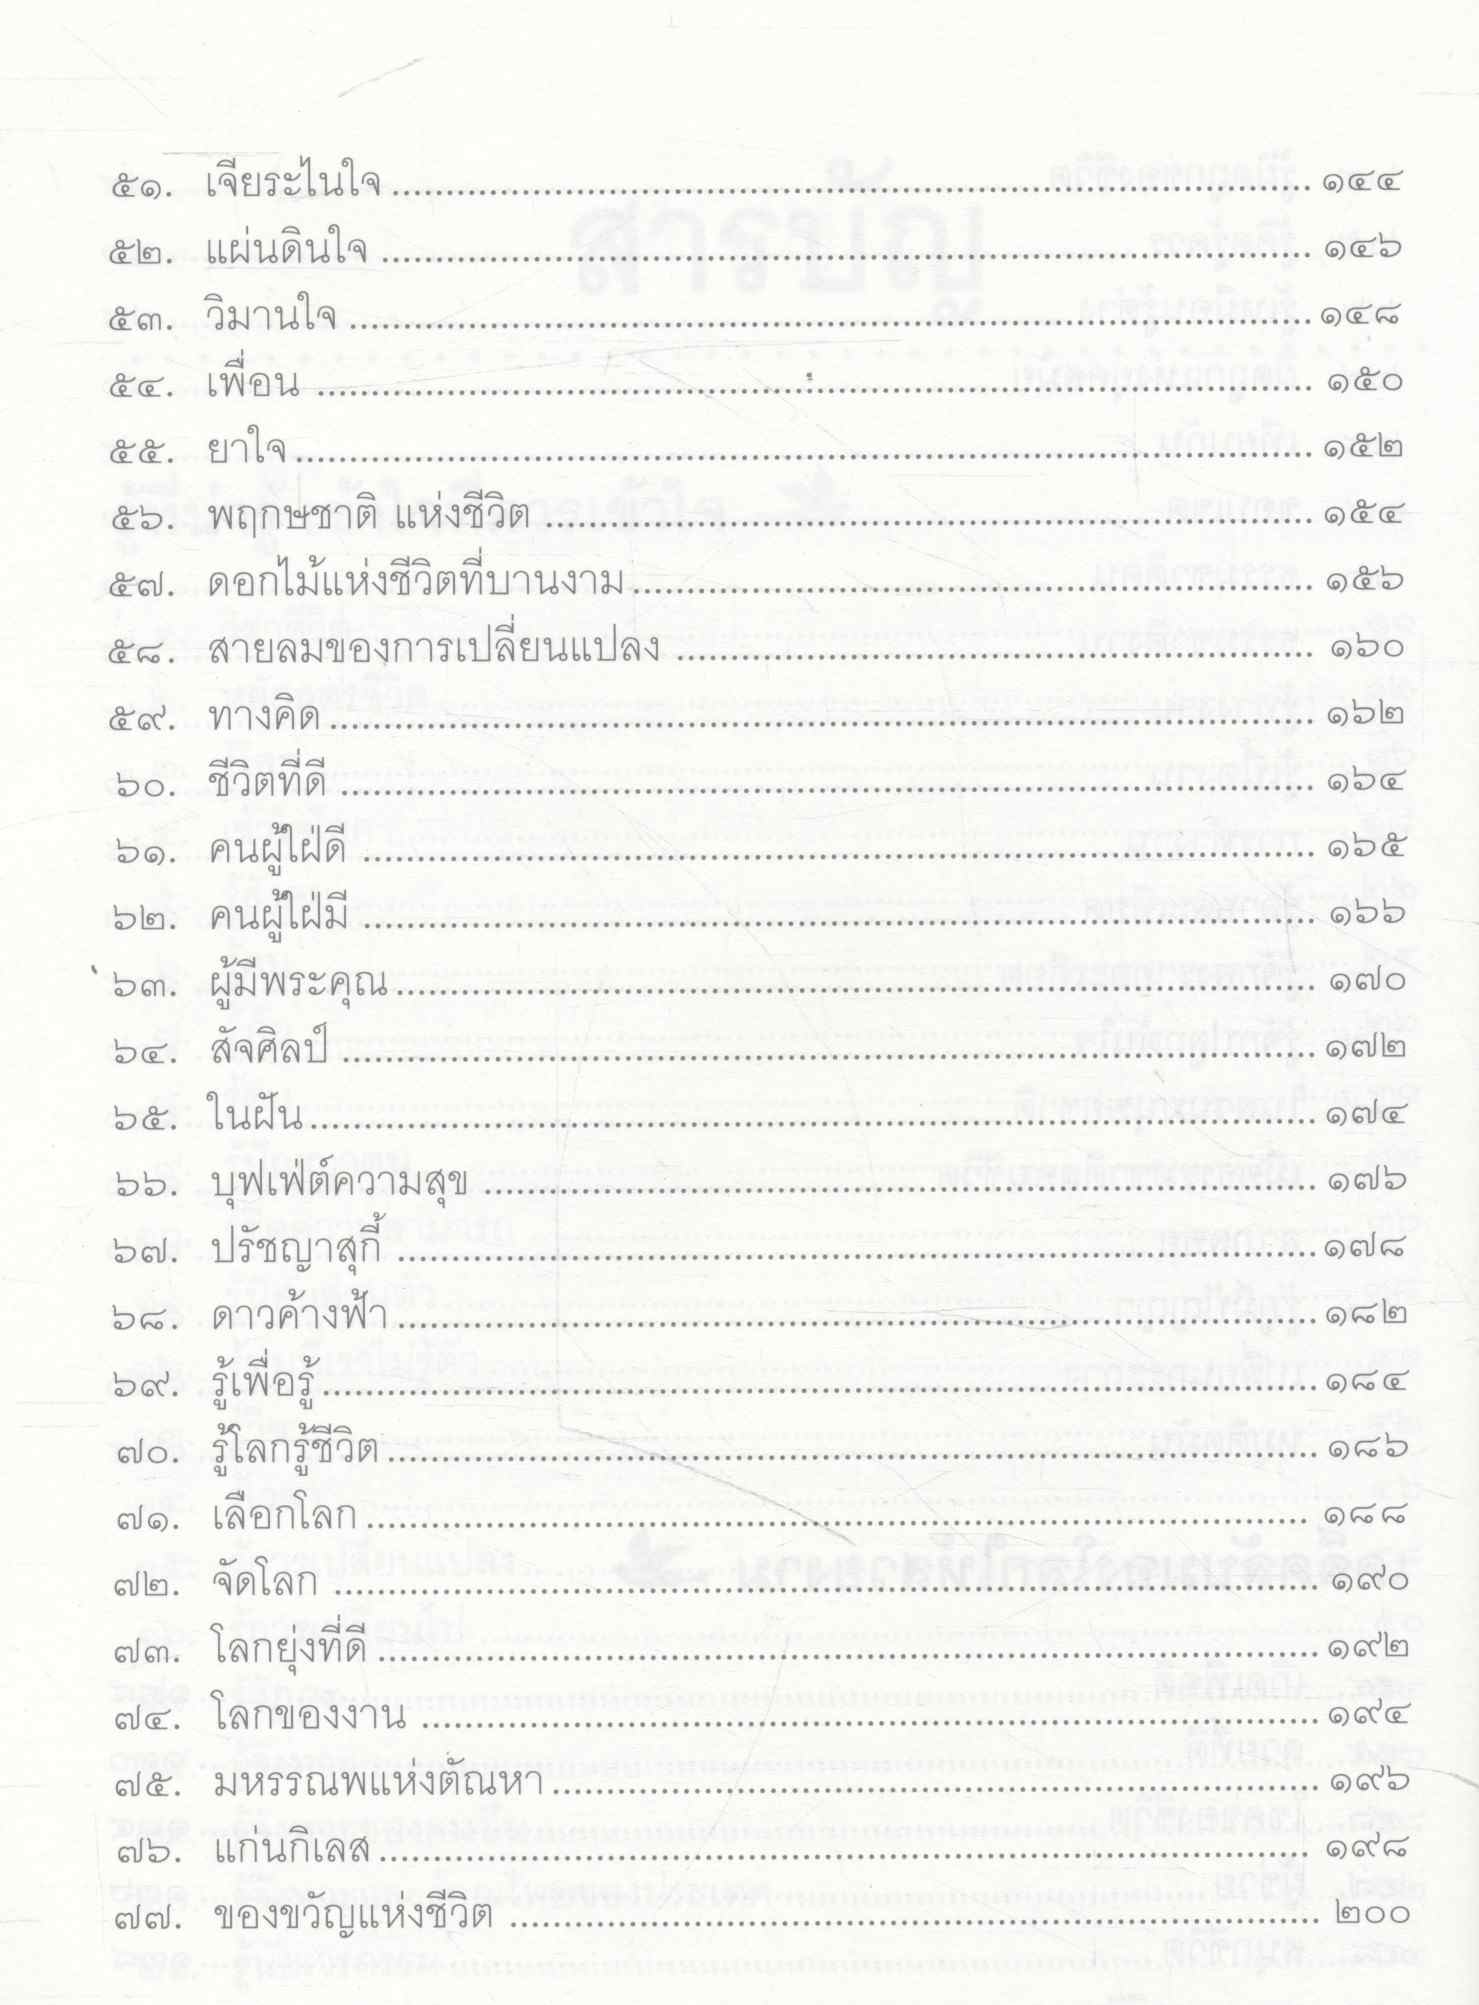 ๕๑. เจียระไนใจ ........ ๑๔๔
๕๒. แผ่นดินใจ ........ ๑๔๖
๕๓. วิมานใจ ........ ๑๔๘
๕๔. เพื่อน ........ ๑๕๐
๕๕. ยาใจ ........ ๑๕๒
๕๖. พฤกษชาติ แห่งชีวิต ........ ๑๕๔
๕๗. ดอกไม้แห่งชีวิตที่บานงาม ........ ๑๕๖
๕๘. สายลมของการเปลี่ยนแปลง ........ ๑๖๐
๕๙. ทางคิด ........ ๑๖๒
๖๐. ชีวิตที่ดี ........ ๑๖๔
๖๑. คนผู้ใฝ่ดี ........ ๑๖๕
๖๒. คนผู้ใฝ่มี ........ ๑๖๖
๖๓. ผู้มีพระคุณ ........ ๑๗๐
๖๔. สัจศิลป์ ........ ๑๗๒
๖๕. ในฝัน ........ ๑๗๔
๖๖. บุฟเฟ่ต์ความสุข ........ ๑๗๖
๖๗. ปรัชญาสุกี้ ........ ๑๗๘
๖๘. ดาวค้างฟ้า ........ ๑๘๒
๖๙. รู้เพื่อรู้ ........ ๑๘๔
๗๐. รู้โลกรู้ชีวิต ........ ๑๘๖
๗๑. เลือกโลก ........ ๑๘๘
๗๒. จัดโลก ........ ๑๙๐
๗๓. โลกยุ่งที่ดี ........ ๑๙๒
๗๔. โลกของงาน ........ ๑๙๔
๗๕. มหรรณพแห่งตัณหา ........ ๑๙๖
๗๖. แก่นกิเลส ........ ๑๙๘
๗๗. ของขวัญแห่งชีวิต ........ ๒๐๐